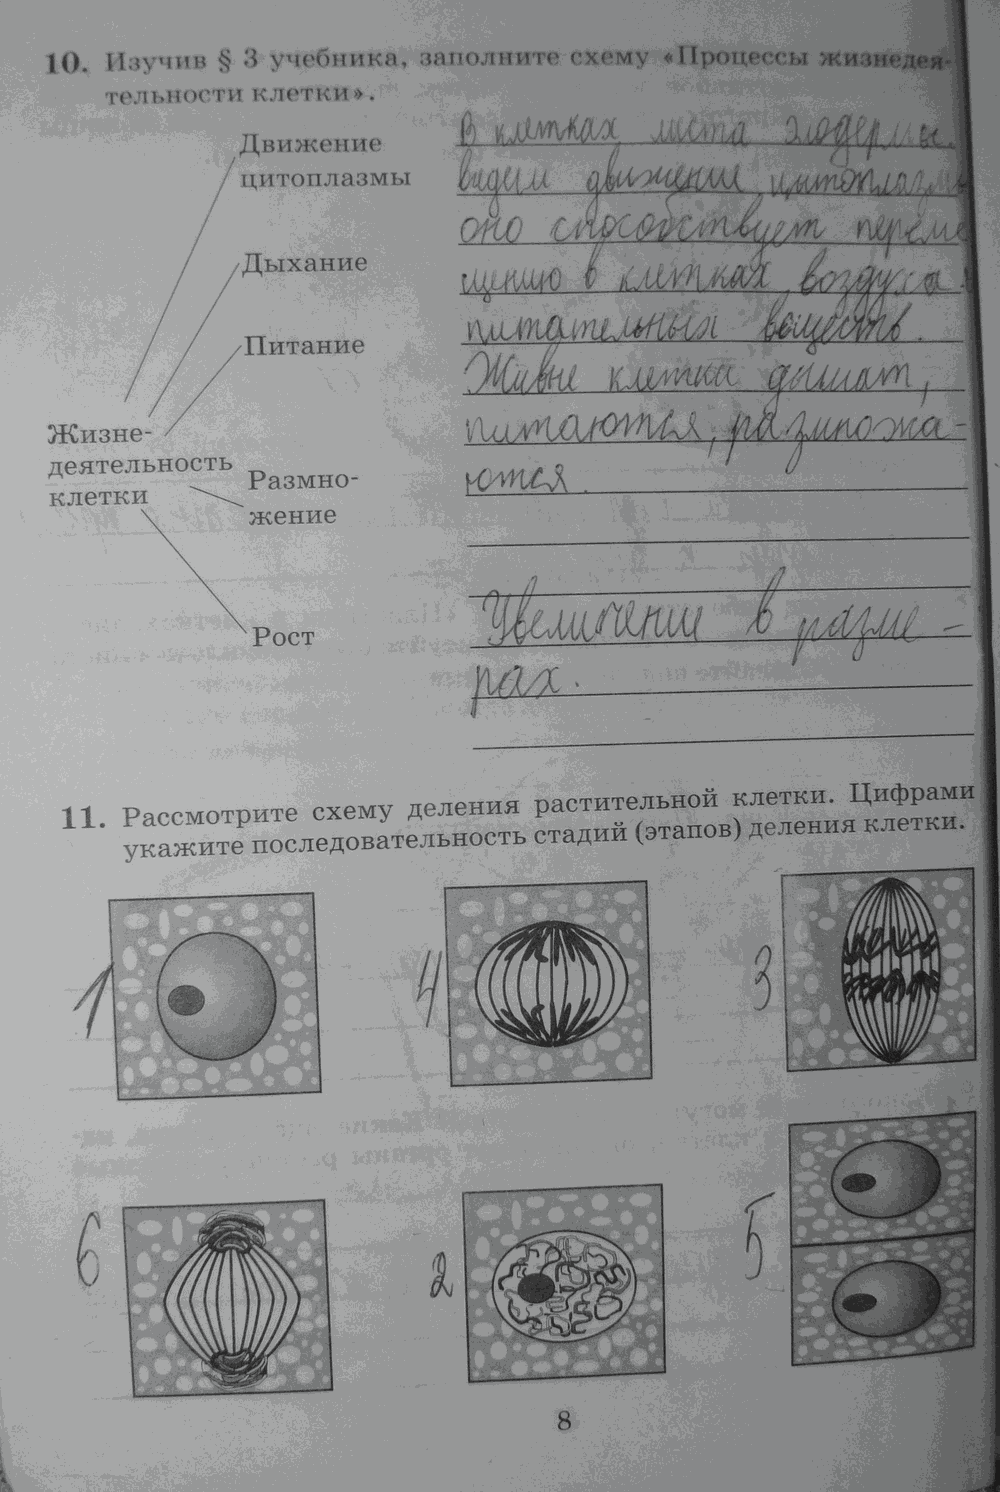 10. Изучив § 3 учебника, заполните схему «Процессы жизнедея-
тельности клетки».
Движение
цитоплазмы
Дыхание
Питание
Жизне-
деятельность
клетки
Размно-
жение
Рост
В клетках листа элодеры
видем движение цитоплазмы
оно способствует переме
щению в клетках воздуха и
питательных веществ.
Живые клетки дышат,
питаются, размножа-
ются.
Увеличение в разме-
рах.
11. Рассмотрите схему деления растительной клетки. Цифрами
укажите последовательность стадий (этапов) деления клетки.
1 4 3
6 2 5
8